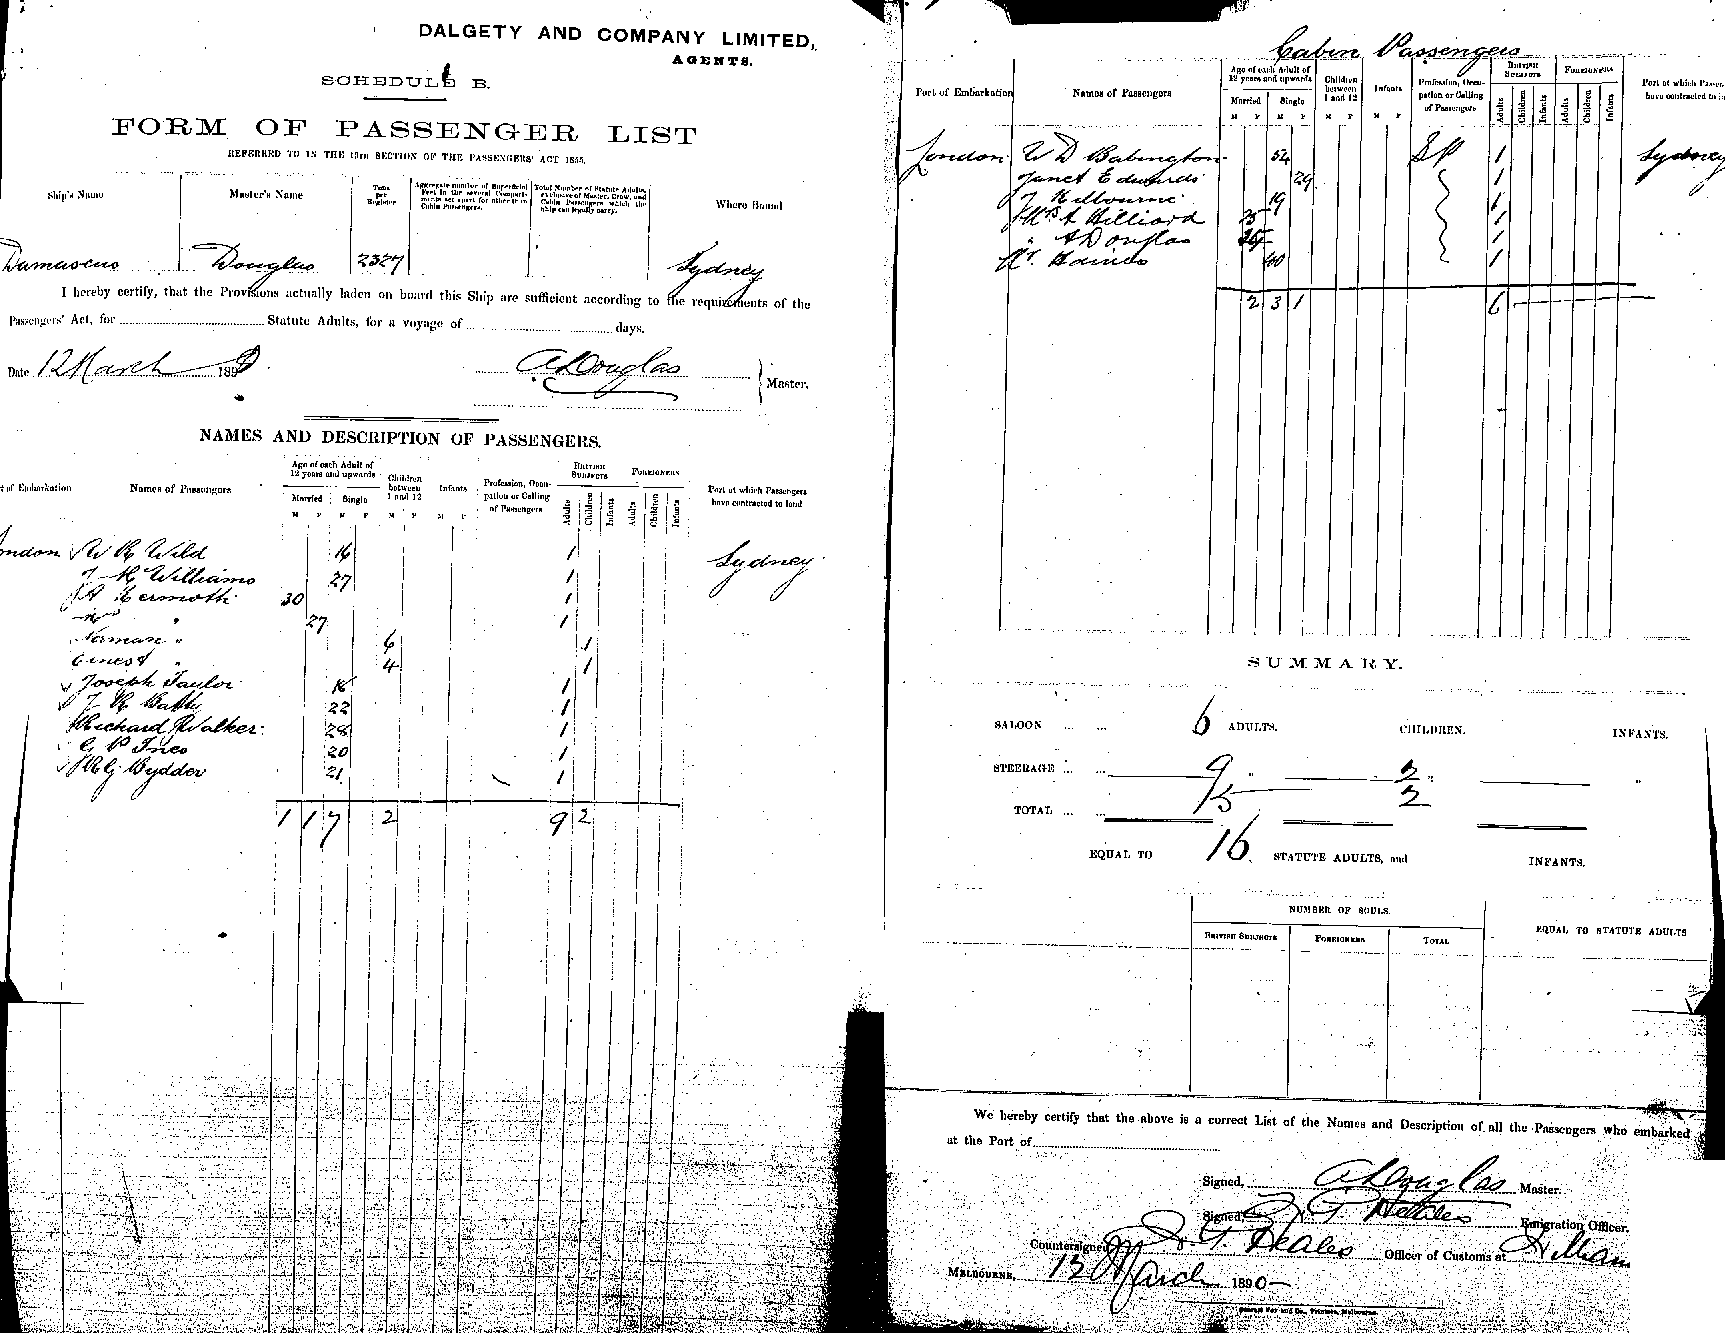 DALGETY AND COMPANY LIMITED,
AGENTS.
SCHEDULE B.
FORM OF PASSENGER LIST
REFERRED TO IN THE 16TH SECTION OF THE PASSENGERS' ACT 1855.
Ship's Name Master's Name Tons per Register Aggregate number of Superficial Feet in the several Compartments set apart for other than Cabin Passengers. Total Number of Statute Adults, exclusive of Master, Crew, and Cabin Passengers which the ship can legally carry. Where Bound
Damascus Douglas 2327 Sydney
I hereby certify, that the Provisions actually laden on board this Ship are sufficient according to the requirements of the
Passengers' Act, for Statute Adults, for a voyage of days.
Date 12 March 1890 A Douglas Master.
NAMES AND DESCRIPTION OF PASSENGERS.
t of Embarkation Names of Passengers Age of each Adult of 12 years and upwards Married Single Children between 1 and 12 Infants Profession, Occupation or Calling of Passengers BRITISH SUBJECTS FOREIGNERS Port at which Passengers have contracted to land
M F M F M F M F Adults Children Infants Adults Children Infants
ondon W R Wild 16 1 Sydney
Williams 27 1
30 1
" 27 1
Norman " 6 1
Ernest " 4 1
Joseph Taylor 16 1
J R Batty 22 1
Richard Walker 28 1
G P Ines 20 1
Bydder 21 1
1 1 7 2 9 2
Cabin Passengers
Port of Embarkation Names of Passengers Age of each Adult of 12 years and upwards Married Single Children between 1 and 12 Infants Profession, Occupation or Calling of Passengers BRITISH SUBJECTS FOREIGNERS Port at which Passen have contracted to
M F M F M F M F Adults Children Infants Adults Children Infants
London W D Babington 54 1 Sydney
Janet Edwards 24 1
J 19 1
Mrs A Hilliard 25 1
" A Douglas 1
Mr Haines 40 1
2 3 1 6
SUMMARY.
SALOON 6 ADULTS. CHILDREN. INFANTS.
STEERAGE 9 " 2 " "
TOTAL 15 2
EQUAL TO 16 STATUTE ADULTS, and INFANTS.
NUMBER OF SOULS. EQUAL TO STATUTE ADULTS
BRITISH SUBJECTS FOREIGNERS TOTAL
We hereby certify that the above is a correct List of the Names and Description of all the Passengers who embarked
at the Port of
Signed, A Douglas Master.
Signed, Emigration Officer.
Countersigned, Officer of Customs at
MELBOURNE, 13 March 1890